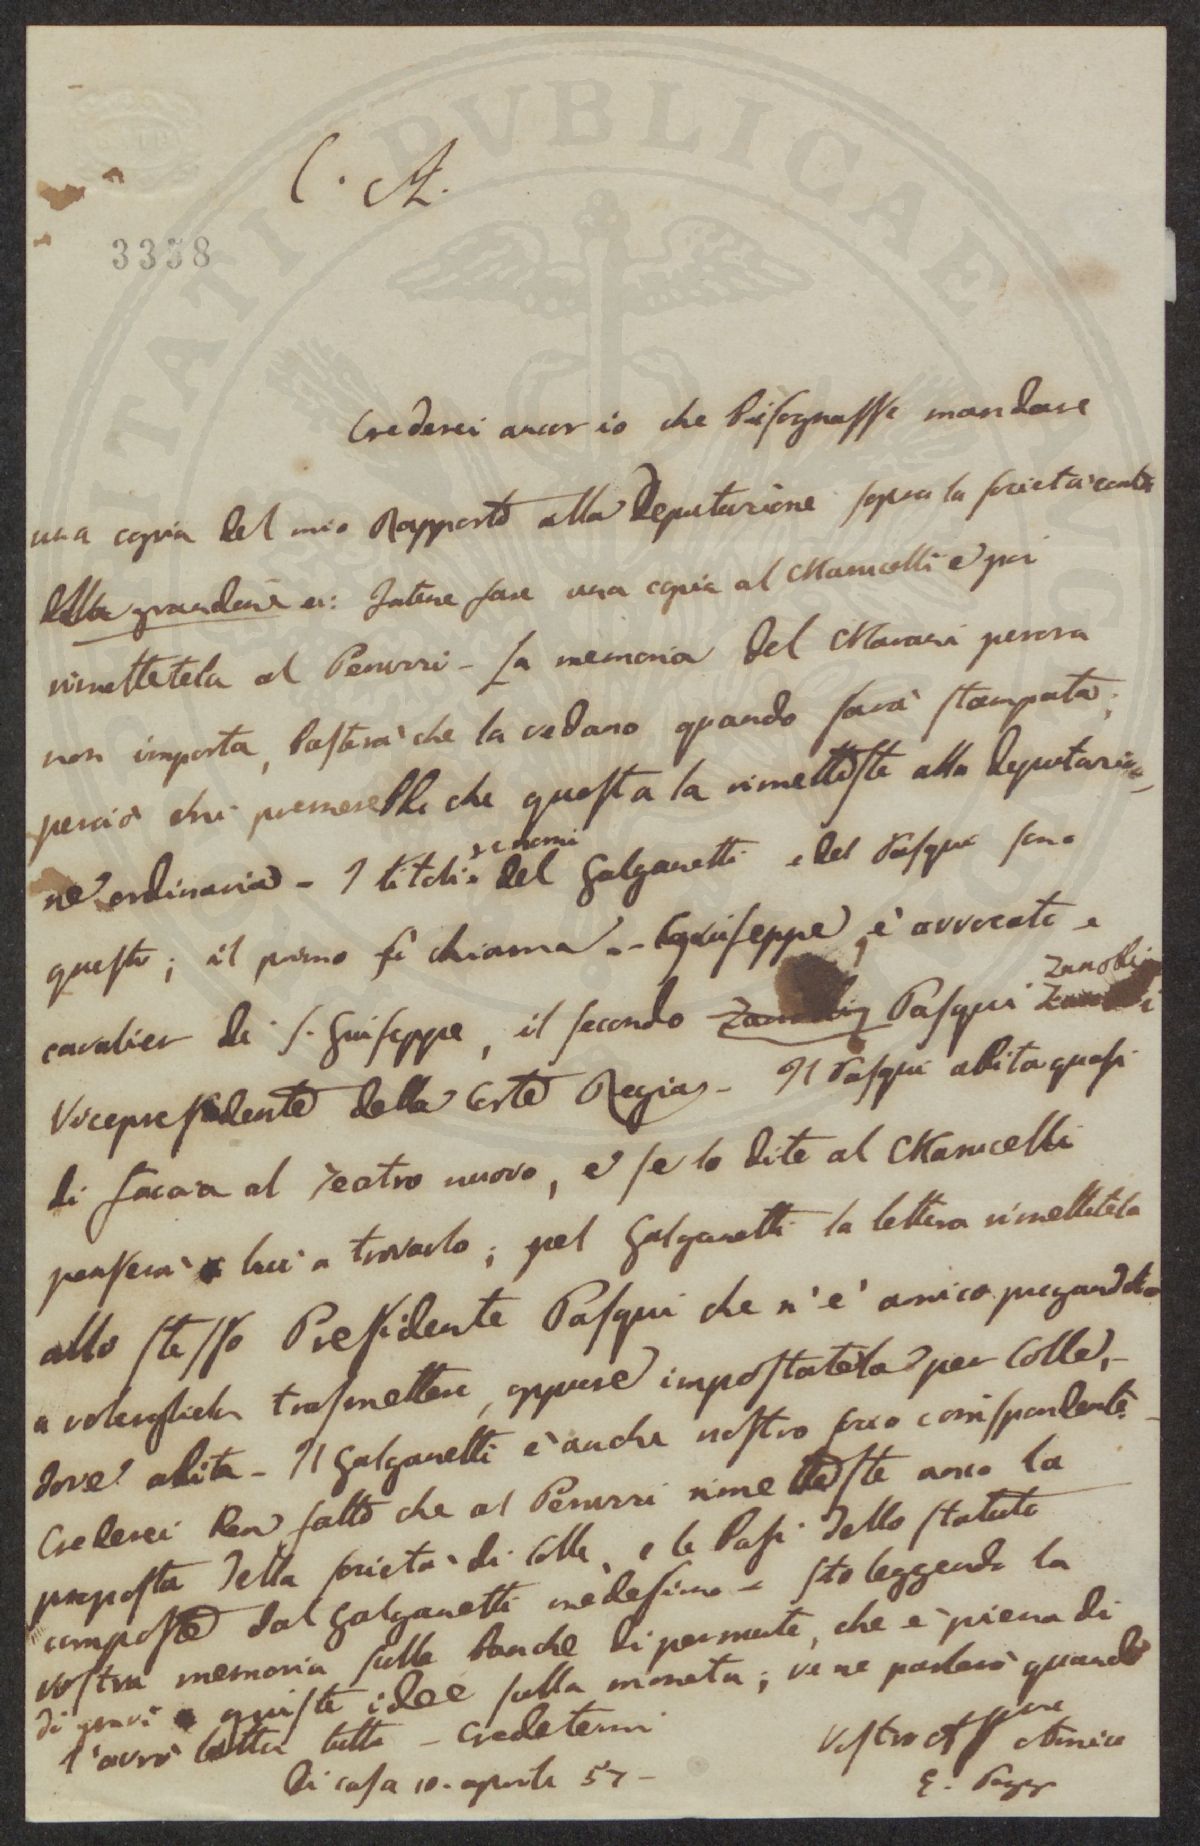 C. A.
3358
Crederei ancor io che bisognasse mandare
una copia del mio Rapporto alla Deputazione sopra la società contro
della grandine
fare una copia al Manucelli e poi
rimettetela al Peruzzi - La memoria del
non importa, basterà che la vedano quando sarà stampata,
perciò che questa la rimetteste alla Deputazio-
ne ordinaria - I titoli e nomi del Galganetti e del Pasqui sono
questi; il primo si chiama - Giuseppe, è avvocato e
cavalier di S. Giuseppe, il secondo Pasqui Zanobi
Vicepresidente della Corte Regia - Il Pasqui abita quasi
di faccia al Teatro nuovo, e se lo dite al Manucelli
penserà lui a trovarlo; pel Galganetti la lettera rimettetela
allo stesso Presidente Pasqui che n'è amico pregandolo
a volergliela trasmettere, oppure impostatela per Colle,
dove abita - Il Galganetti è anche nostro socio corrispondente.
Crederei ben fatto che al Peruzzi rimetteste anco la
proposta della società di Colle, e le basi dello statuto
composte dal Galganetti medesimo - Sto leggendo la
vostra memoria sulle banche di permute, che è piena di
di gravi e giuste idee sulla moneta; ve ne parlerò quando
l'avrò letta tutta - Credetemi
Vostro Affmo Amico
Di casa 10. agosto 57 -
E. Poggi